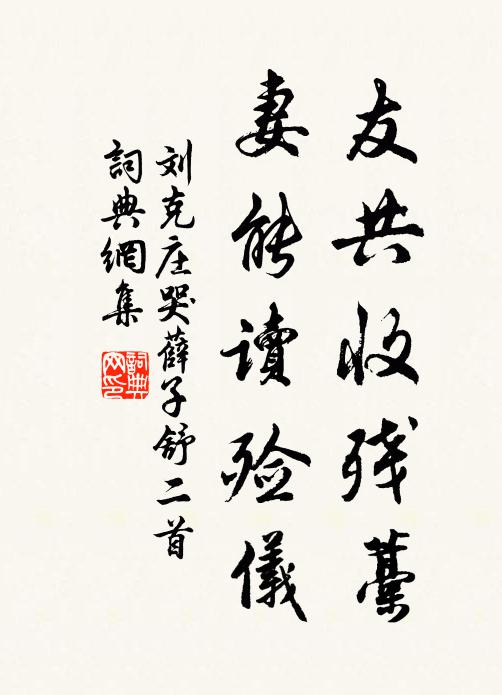 友共收残藁
妻能读殓儀
刘克庄哭薛子舒二首
詞典網集
詞典
网印